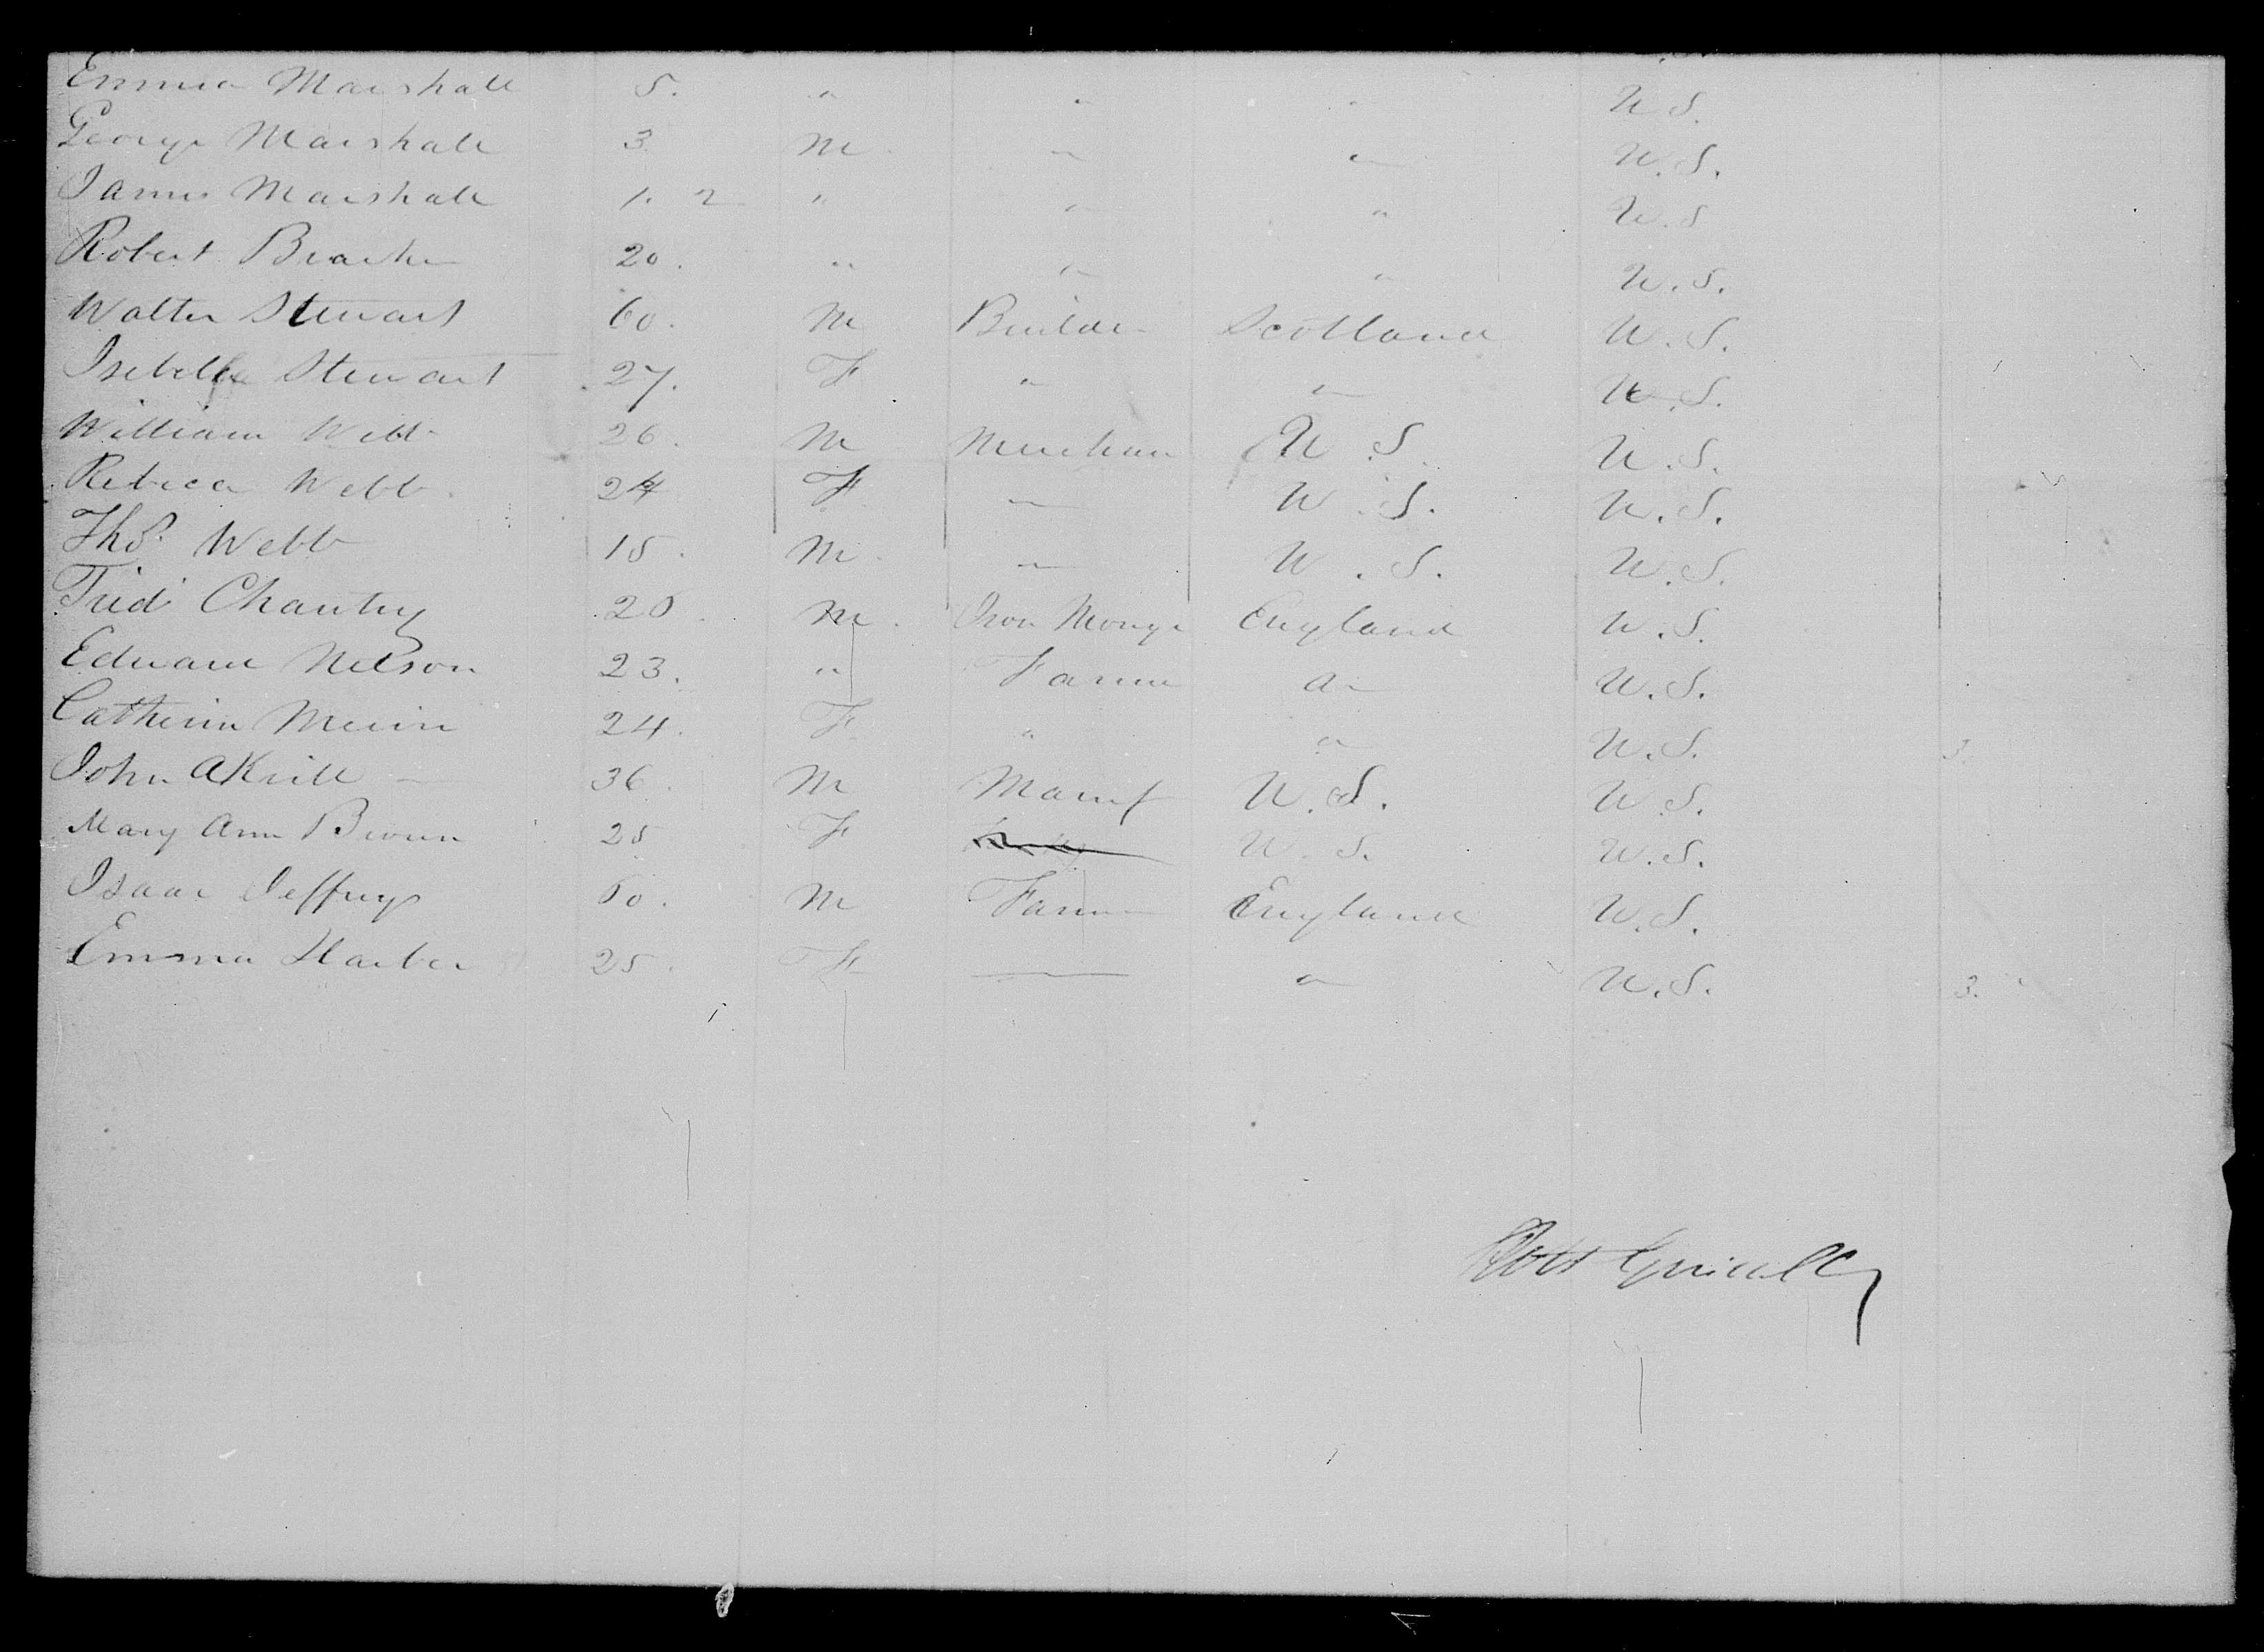 Emma Marshall 5. " " " U S.
George Marshall 3 M " " U.S.
James Marshall 1. 2 " " " U.S
Robert 20. " " " U.S.
Walter Stewart 60. M Builder Scotland U.S.
Isebella Stewart 27. F " " U.S.
William Webb 26. M U.S U.S.
Rebecca Webb 24 F " U.S. U.S.
Thos. Webb 15. M " U.S. U.S.
Fred Chantry 20. M. Iron Monger England U.S.
Edward Nelson 23. " Farmer " U.S.
Catherin 24. F " " U.S. 3.
John AKrill 36. M Manuf U.S. U.S.
Mary Ann Brown 25 F U.S. U.S.
Isaac Jeffreys 60. M Farmer England U.S.
Emma Harber 25. F — " U.S. 3.
Robt